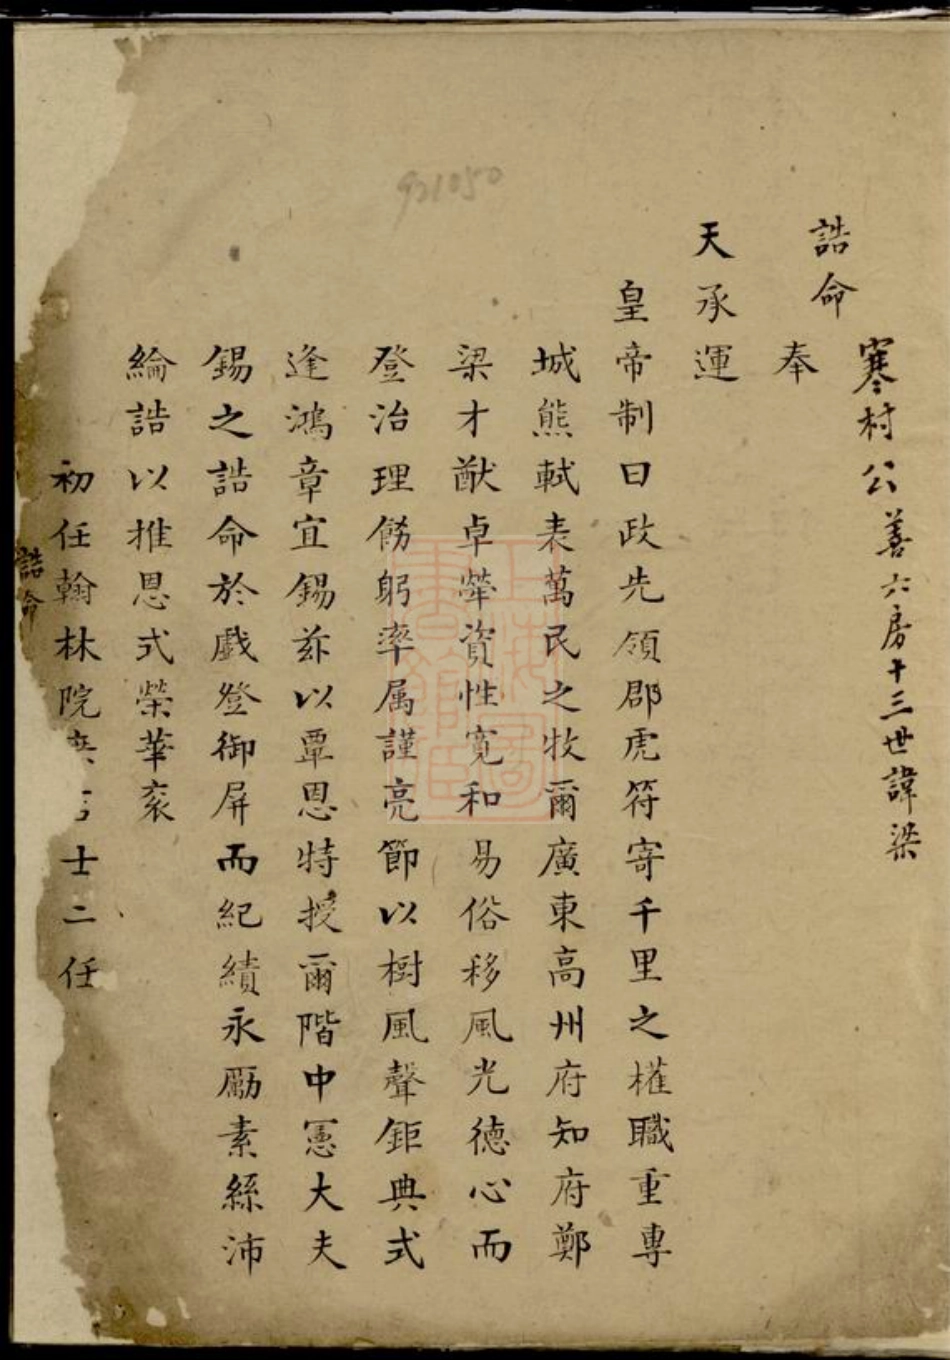 921050
誥命
寒村公善六房十三世諱梁
奉
天承運
皇帝制曰政先領郡虎符寄千里之權職重專
城熊軾表萬民之牧爾廣東高州府知府鄭
梁才猷卓犖資性寬和易俗移風光德心而
登治理飭躬率属謹亮節以樹風聲鉅典式
逢鴻章宜錫玆以覃恩特授爾階中憲大夫
錫之誥命於戲登御屏而紀績永勵素絲沛
綸誥以推恩式榮華衮
初任翰林院士二任
誥命
上海圖書館藏